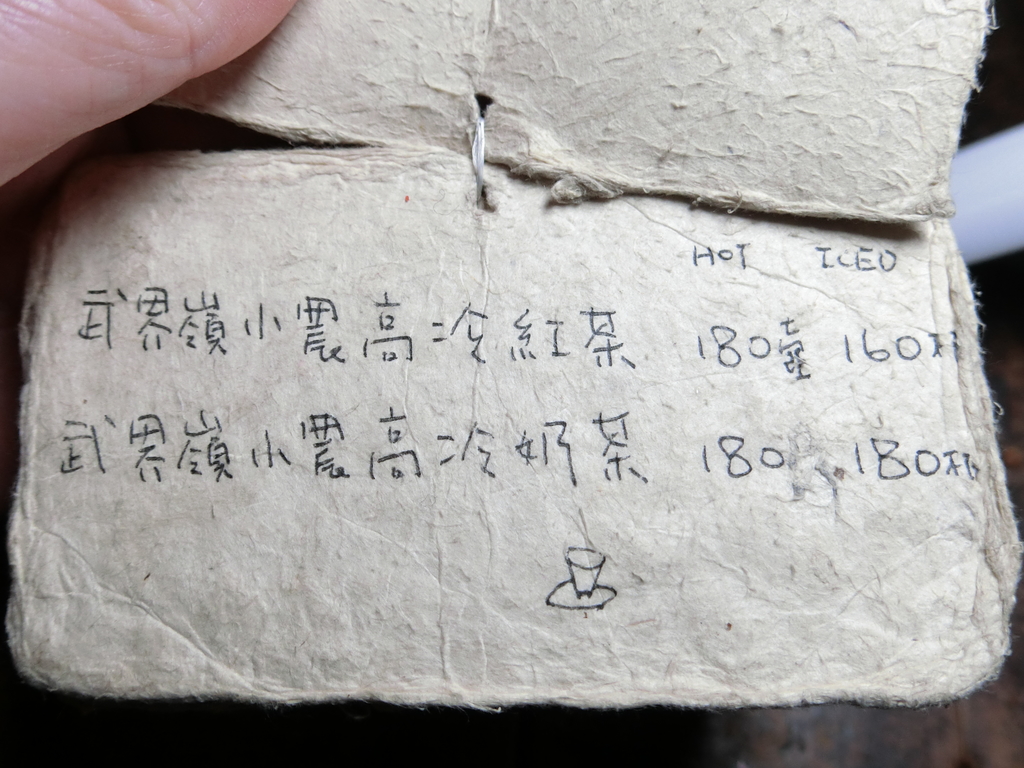 HOT ICED
武界嶺小農高冷紅茶 180壺 160杯
武界嶺小農高冷奶茶 180 180杯